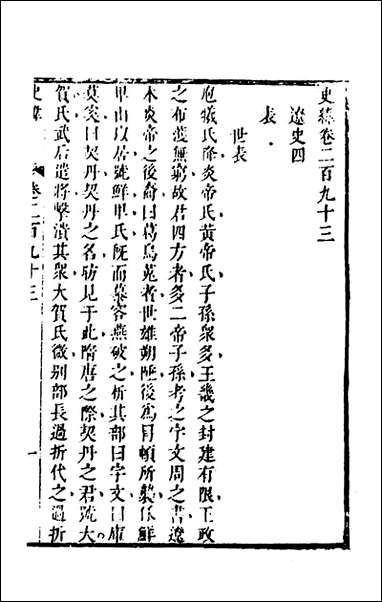 史緯卷二百九十三
遼史四
表
世表
庖犧氏降炎帝氏黃帝氏子孫衆多王畿之封建有限王政
之布濩無窮故君四方者多二帝子孫考之宇文周之書遼
本炎帝之後裔曰葛烏菟者世雄朔陲後爲冒頓所襲保鮮
卑山以居號鮮卑氏旣而慕容燕破之析其部曰宇文曰庫
莫奚曰契丹契丹之名昉見于此隋唐之際契丹之君號大
賀氏武后遣將擊潰其衆大賀氏微别部長過折代之過折
史緯
卷二百九十三
一